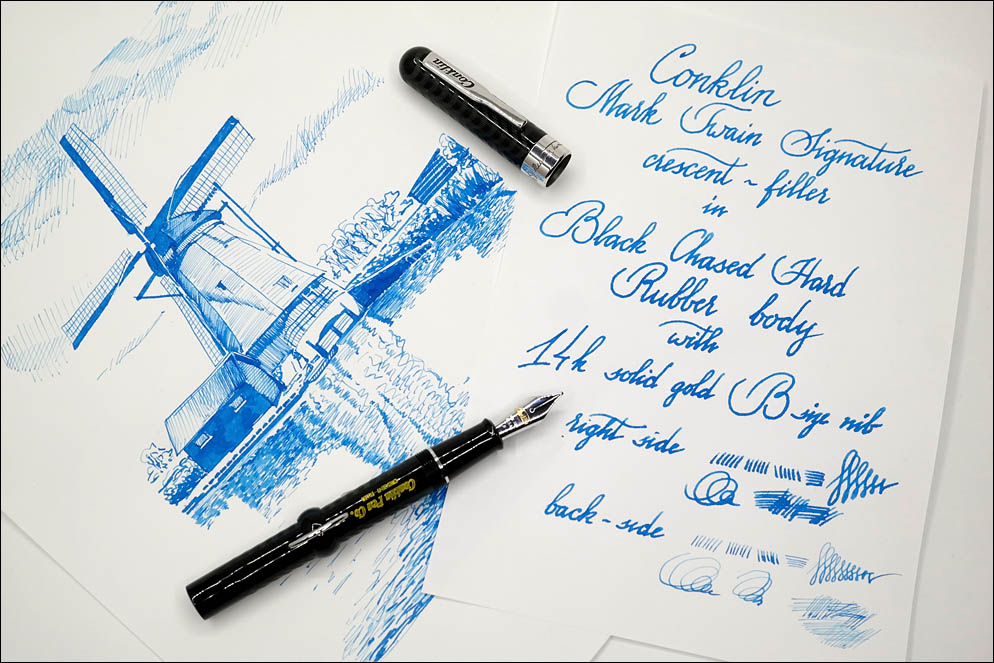 Conklin
Conklin
Mark Twain Signature
crescent ~ filler
in
Black Chased Hard
Rubber body
with
14k solid gold B-size nib
right side
back-side
Conklin Pen Co.